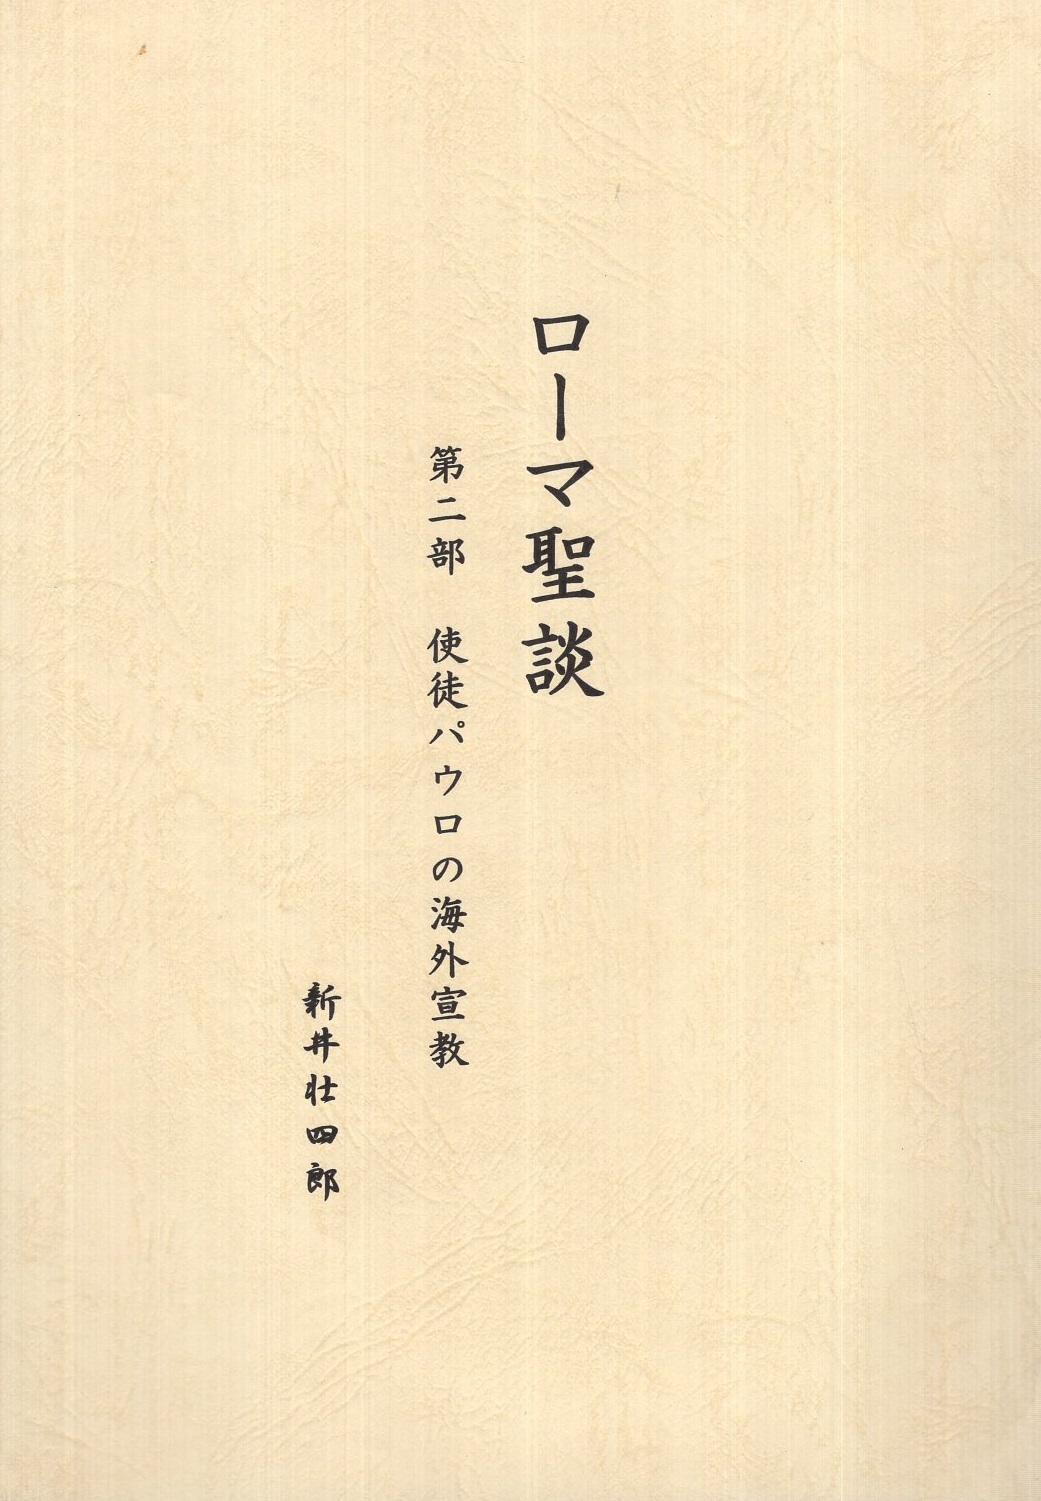 ローマ聖談
第二部　使徒パウロの海外宣教
新井壮四郎